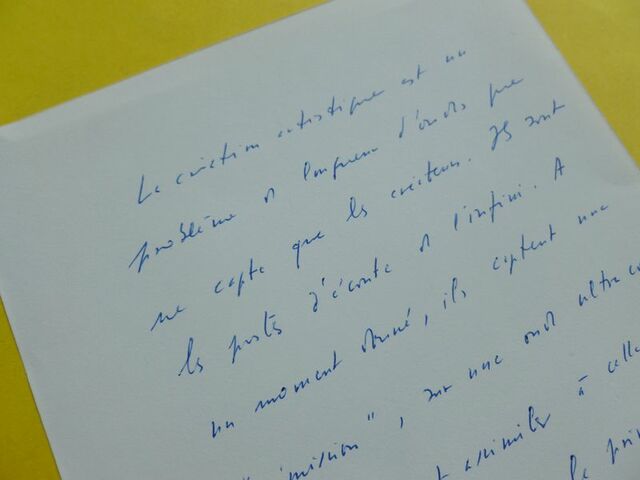 La création artistique est un
problème de longueur d'ondes que
ne capte que les créateurs. Ils sont
les postes d'écoute de l'infini. A
un moment donné, ils captent une
"émission", sur une onde ultra co
assimiler à celle
la